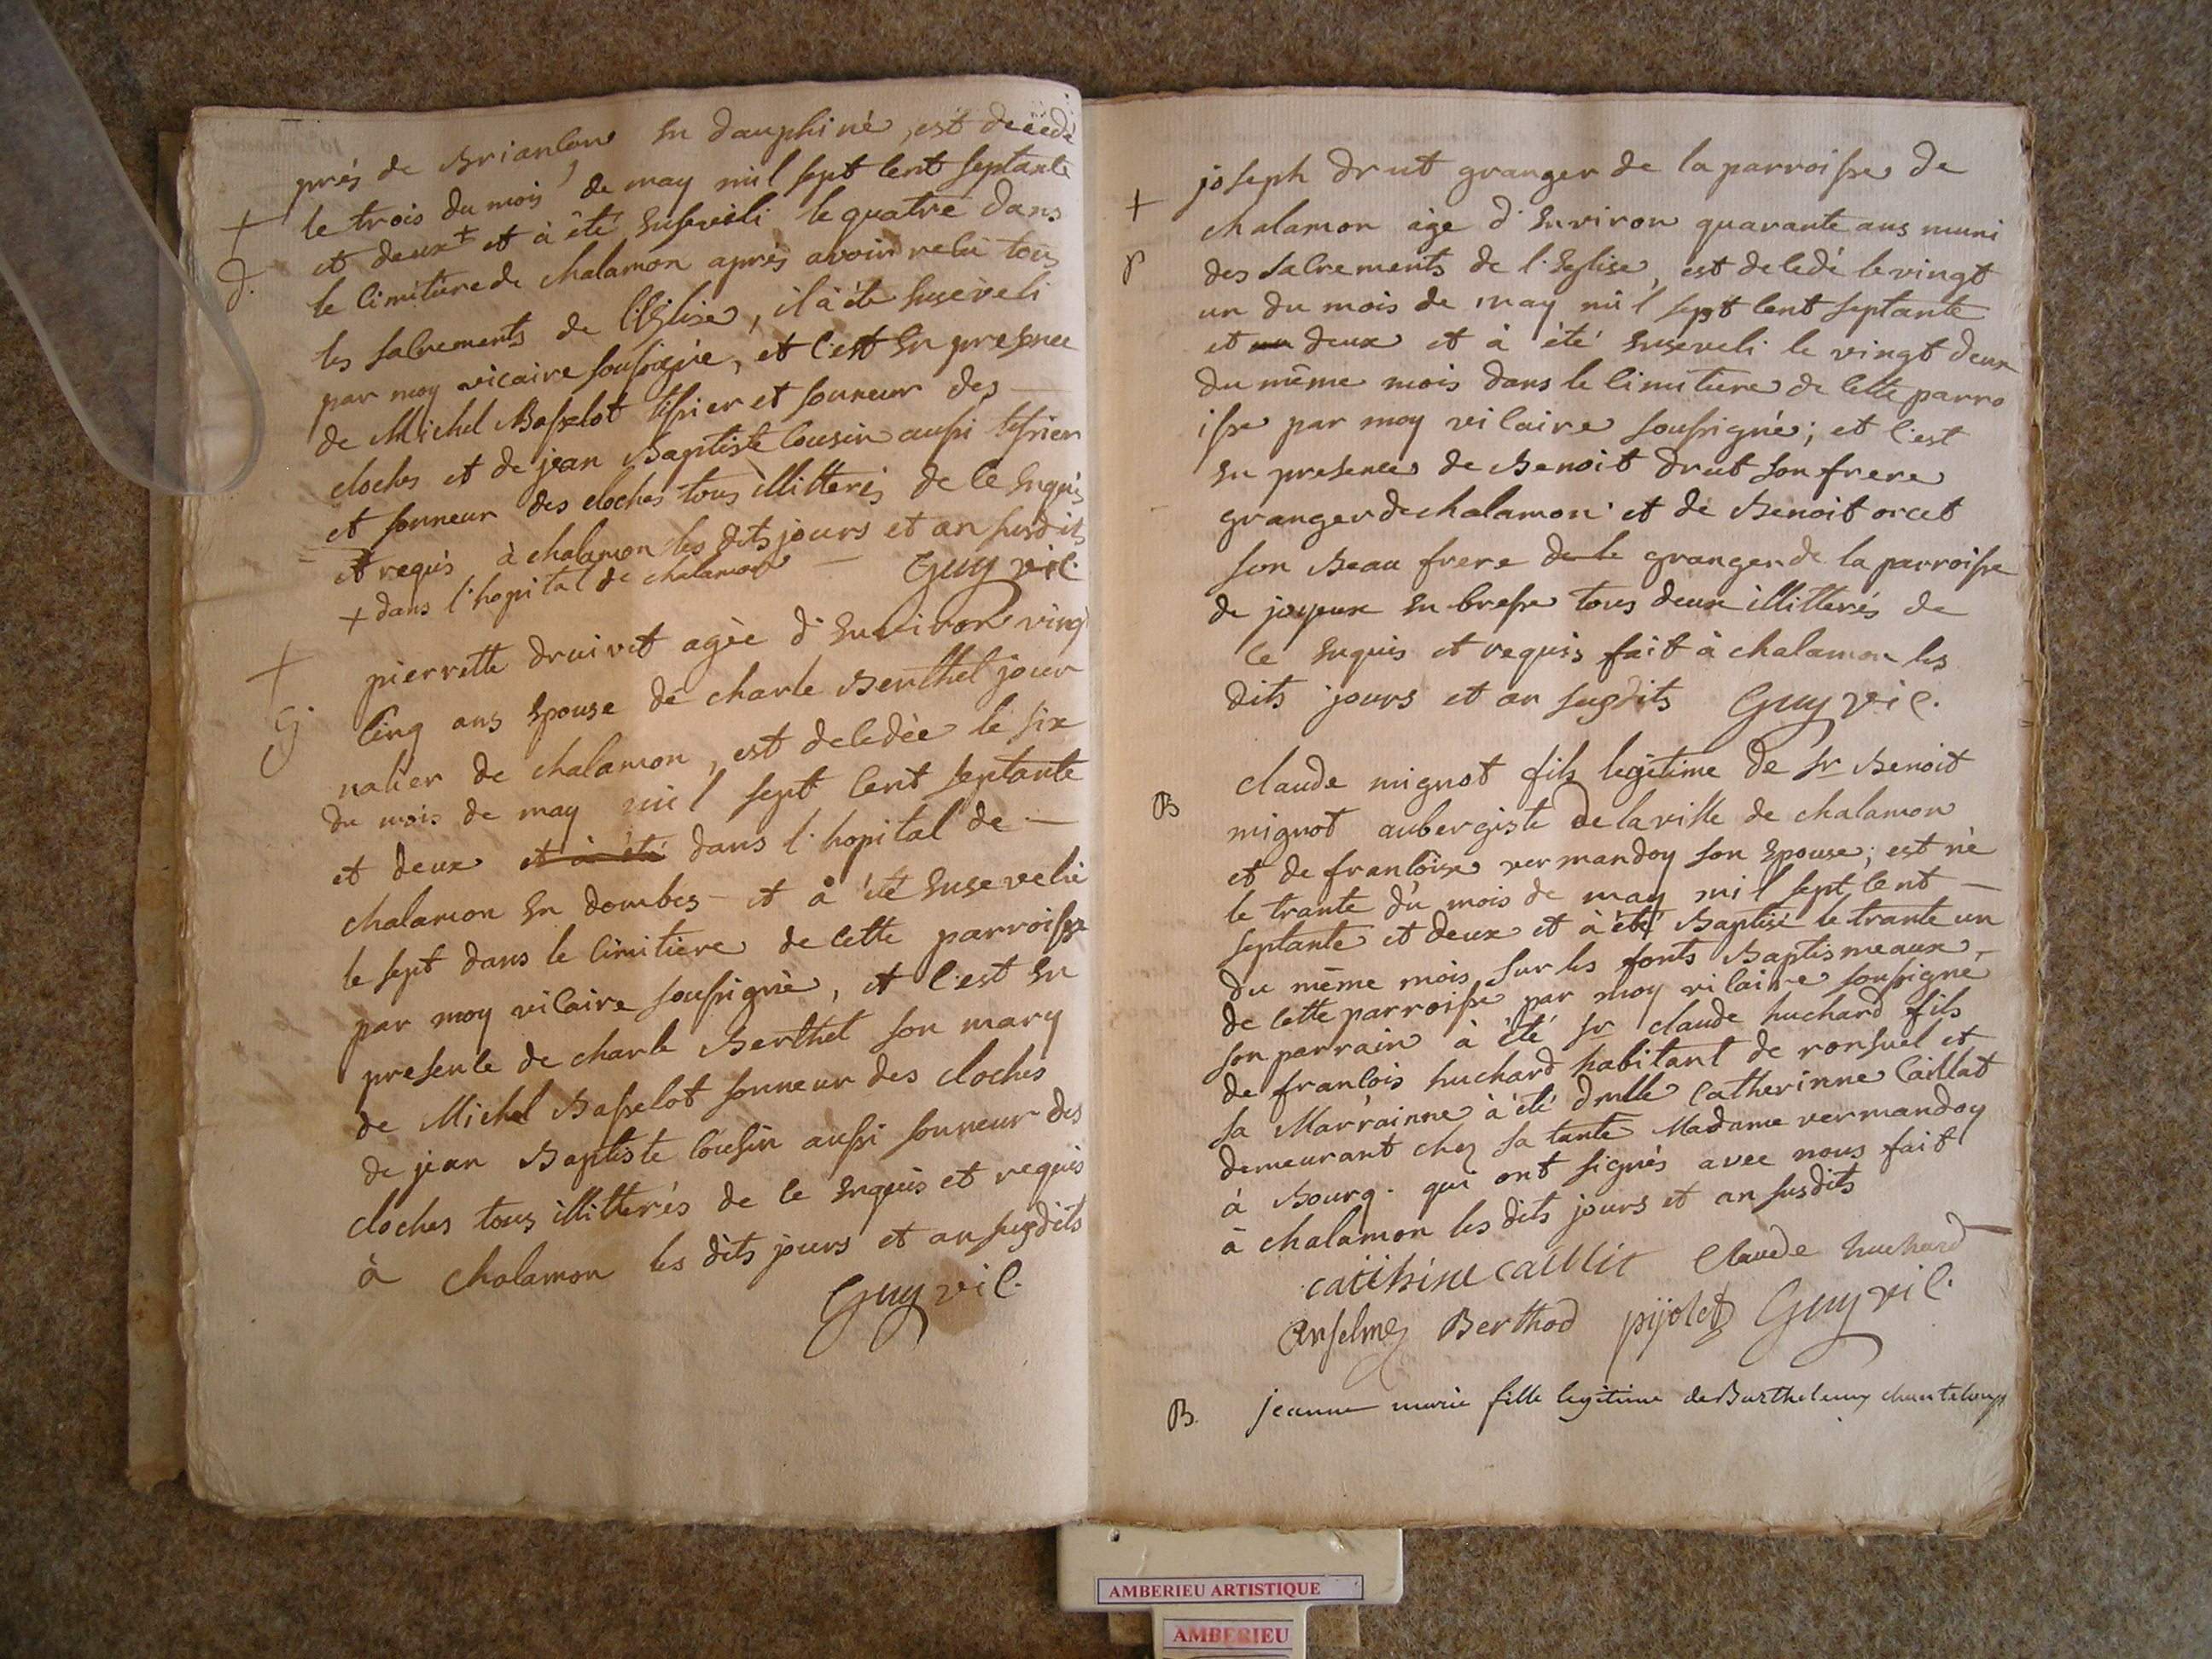 près de Brianlon en dauphiné, est decedé
le trois du mois de may mil sept cent septante
+
et deux + et à été enseveli le quatre dans
d.
le cimitiere de chalamon après avoir relu tous
les sacrements de l'Eglise, il à été enseveli
par moy vicaire soussigné, et c'est en presence
de Michel Basselot tissier et sonneur des
cloches et de jean Baptiste cousin aussi tissier
et sonneur des cloches tous illitterés de ce enquis
et requis à chalamon les dits jours et an susdits
+ dans l'hopital de chalamon — Guy vic.
+
pierrette druivet agée d'environ vingt
G
cinq ans epouse de charle Berthet jour
nalier de chalamon, est decedée le six
du mois de may mil sept cent septante
et deux et à été dans l'hopital de —
chalamon en dombes — et à été ensevelie
le sept dans le cimitiere de cette parroisse
par moy vicaire soussigné, et c'est en
presence de charle Berthet son mary
de Michel Basselot sonneur des cloches
de jean Baptiste cousin aussi sonneur des
cloches tous illitterés de ce enquis et requis
à chalamon les dits jours et an susdits
Guy vic.
joseph drut granger de la parroisse de
+
chalamon age d'environ quarante ans muni
des sacrements de l'Eglise, est decedé le vingt
un du mois de may mil sept cent septante
et un deux et à été enseveli le vingt deux
du même mois dans le cimitiere de cette parro
isse par moy vicaire soussigné; et c'est
en presence de Benoit drut son frere
granger de chalamon et de Benoit orcet
son Beau frere de le granger de la parroisse
de joyeux en bresse tous deux illitterés de
ce enquis et requis fait à chalamon les
dits jours et an susdits Guy vic.
claude mignot fils legitime de sr Benoit
B
mignot aubergiste de la ville de chalamon
et de francoise vermandoy son epouse; est né
le trante du mois de may mil sept cent —
septante et deux et à été Baptisé le trante un
du même mois sur les fonts Baptismeaux
de cette parroisse par moy vicaire soussigné
son parrain à été sr claude huchard fils
de francois huchard habitant de ronsuel et
sa Marrainne à été dmlle catherinne Caillat
demeurant chez sa tante Madame vermandoy
à Bourg. qui ont signés avec nous fait
à chalamon les dits jours et an susdits
Claude huchard
Anselme Berthod pijolet Guy vic.
B. jeanne marie fille legitime de Barthelemy chanteloup
AMBERIEU ARTISTIQUE
AMBERIEU